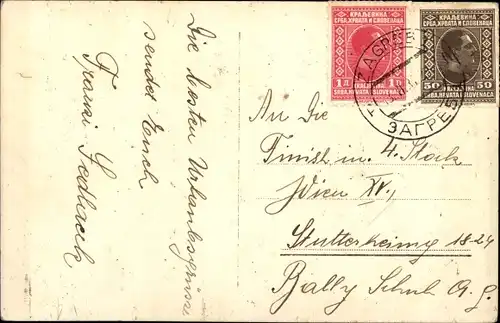 Die besten Urlaubsgrüsse
sendet Euch
Franzi Sedlacek
КРАЉЕВИНА
СРБА, ХРВАТА И СЛОВЕНАЦА
1Д 1D
KRALJEVINA
SRBA, HRVATA I SLOVENACA
КРАЉЕВИНА
СРБА, ХРВАТА И СЛОВЕНАЦА
50 50
KRALJEVINA
SRBA, HRVATA I SLOVENACA
ZAGREB
ЗАГРЕБ
An Die
Finish m. 4. Stock
Wien XV.,
Stutterheimg 18-24
Bally Schuh A. G.